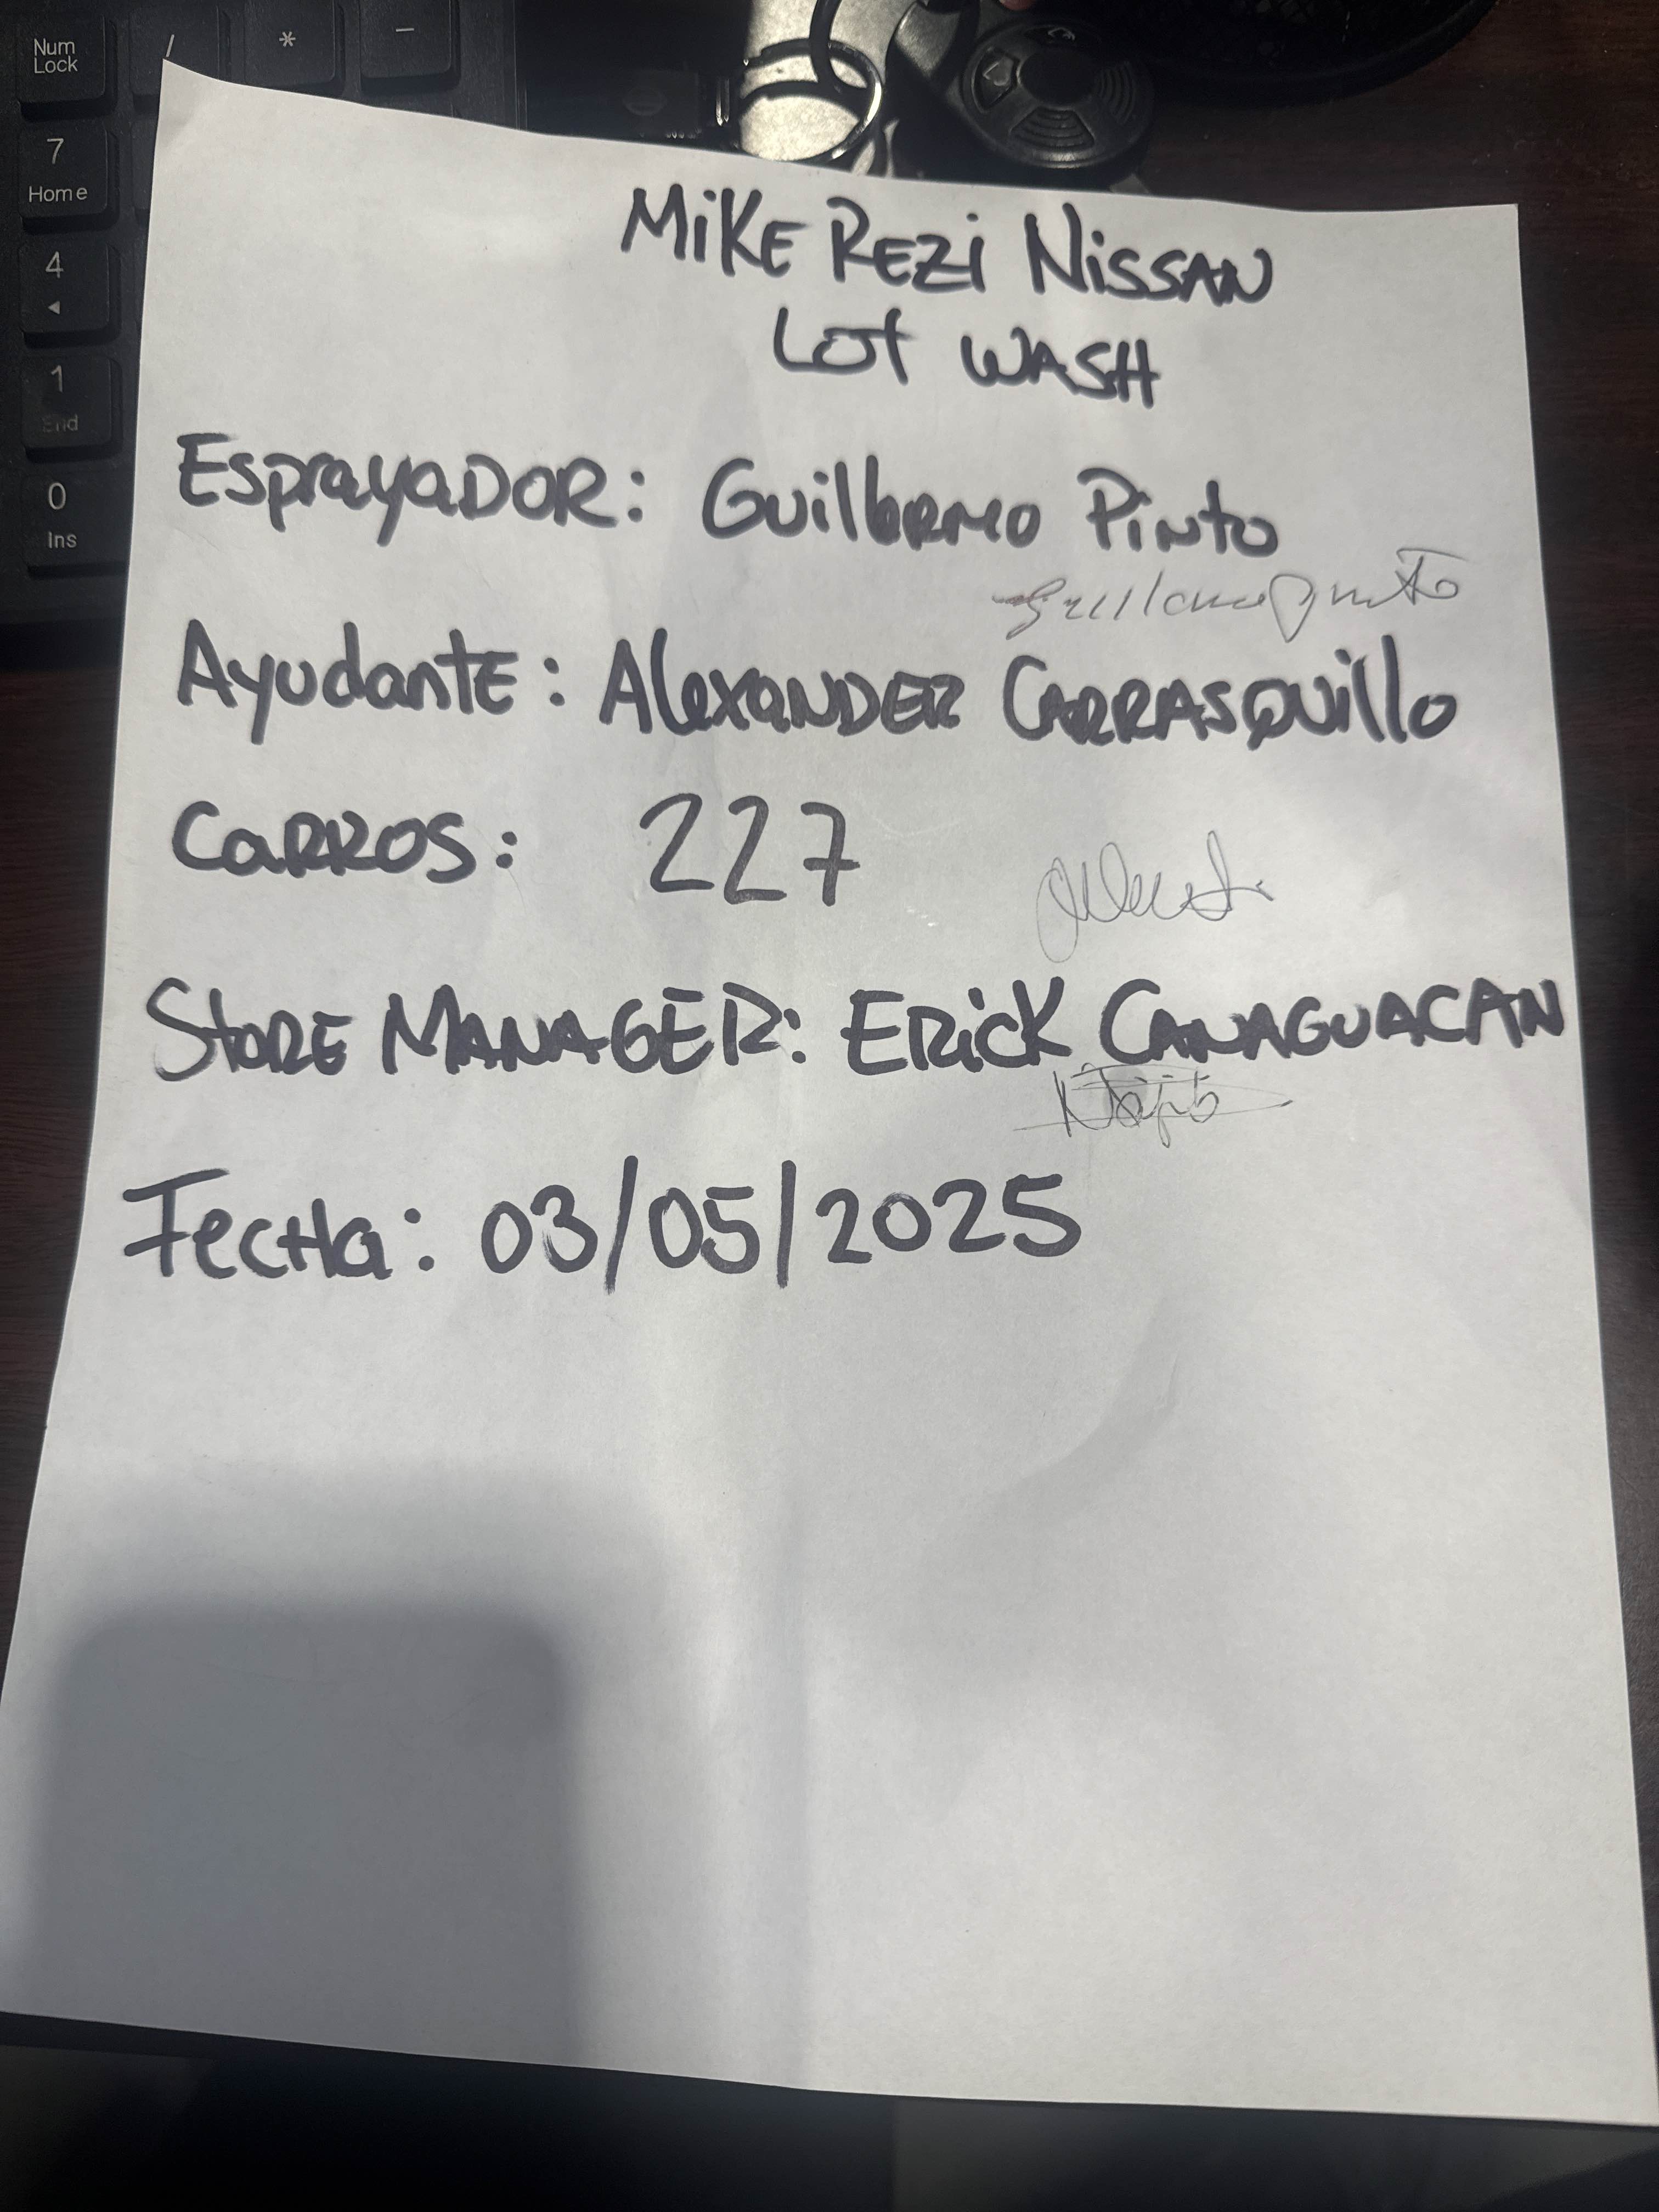 Num
Lock
/
*
-
7
Home
4
1
End
0
Ins
MIKE REZI NISSAN
LOT WASH
EsprayaDOR: Guillermo Pinto
AyudantE: AlexANDER CARRASQUillo
CaRROS: 227
StoRE MANAGER: ERicK CANAGUACAN
FecHa: 03/05/2025